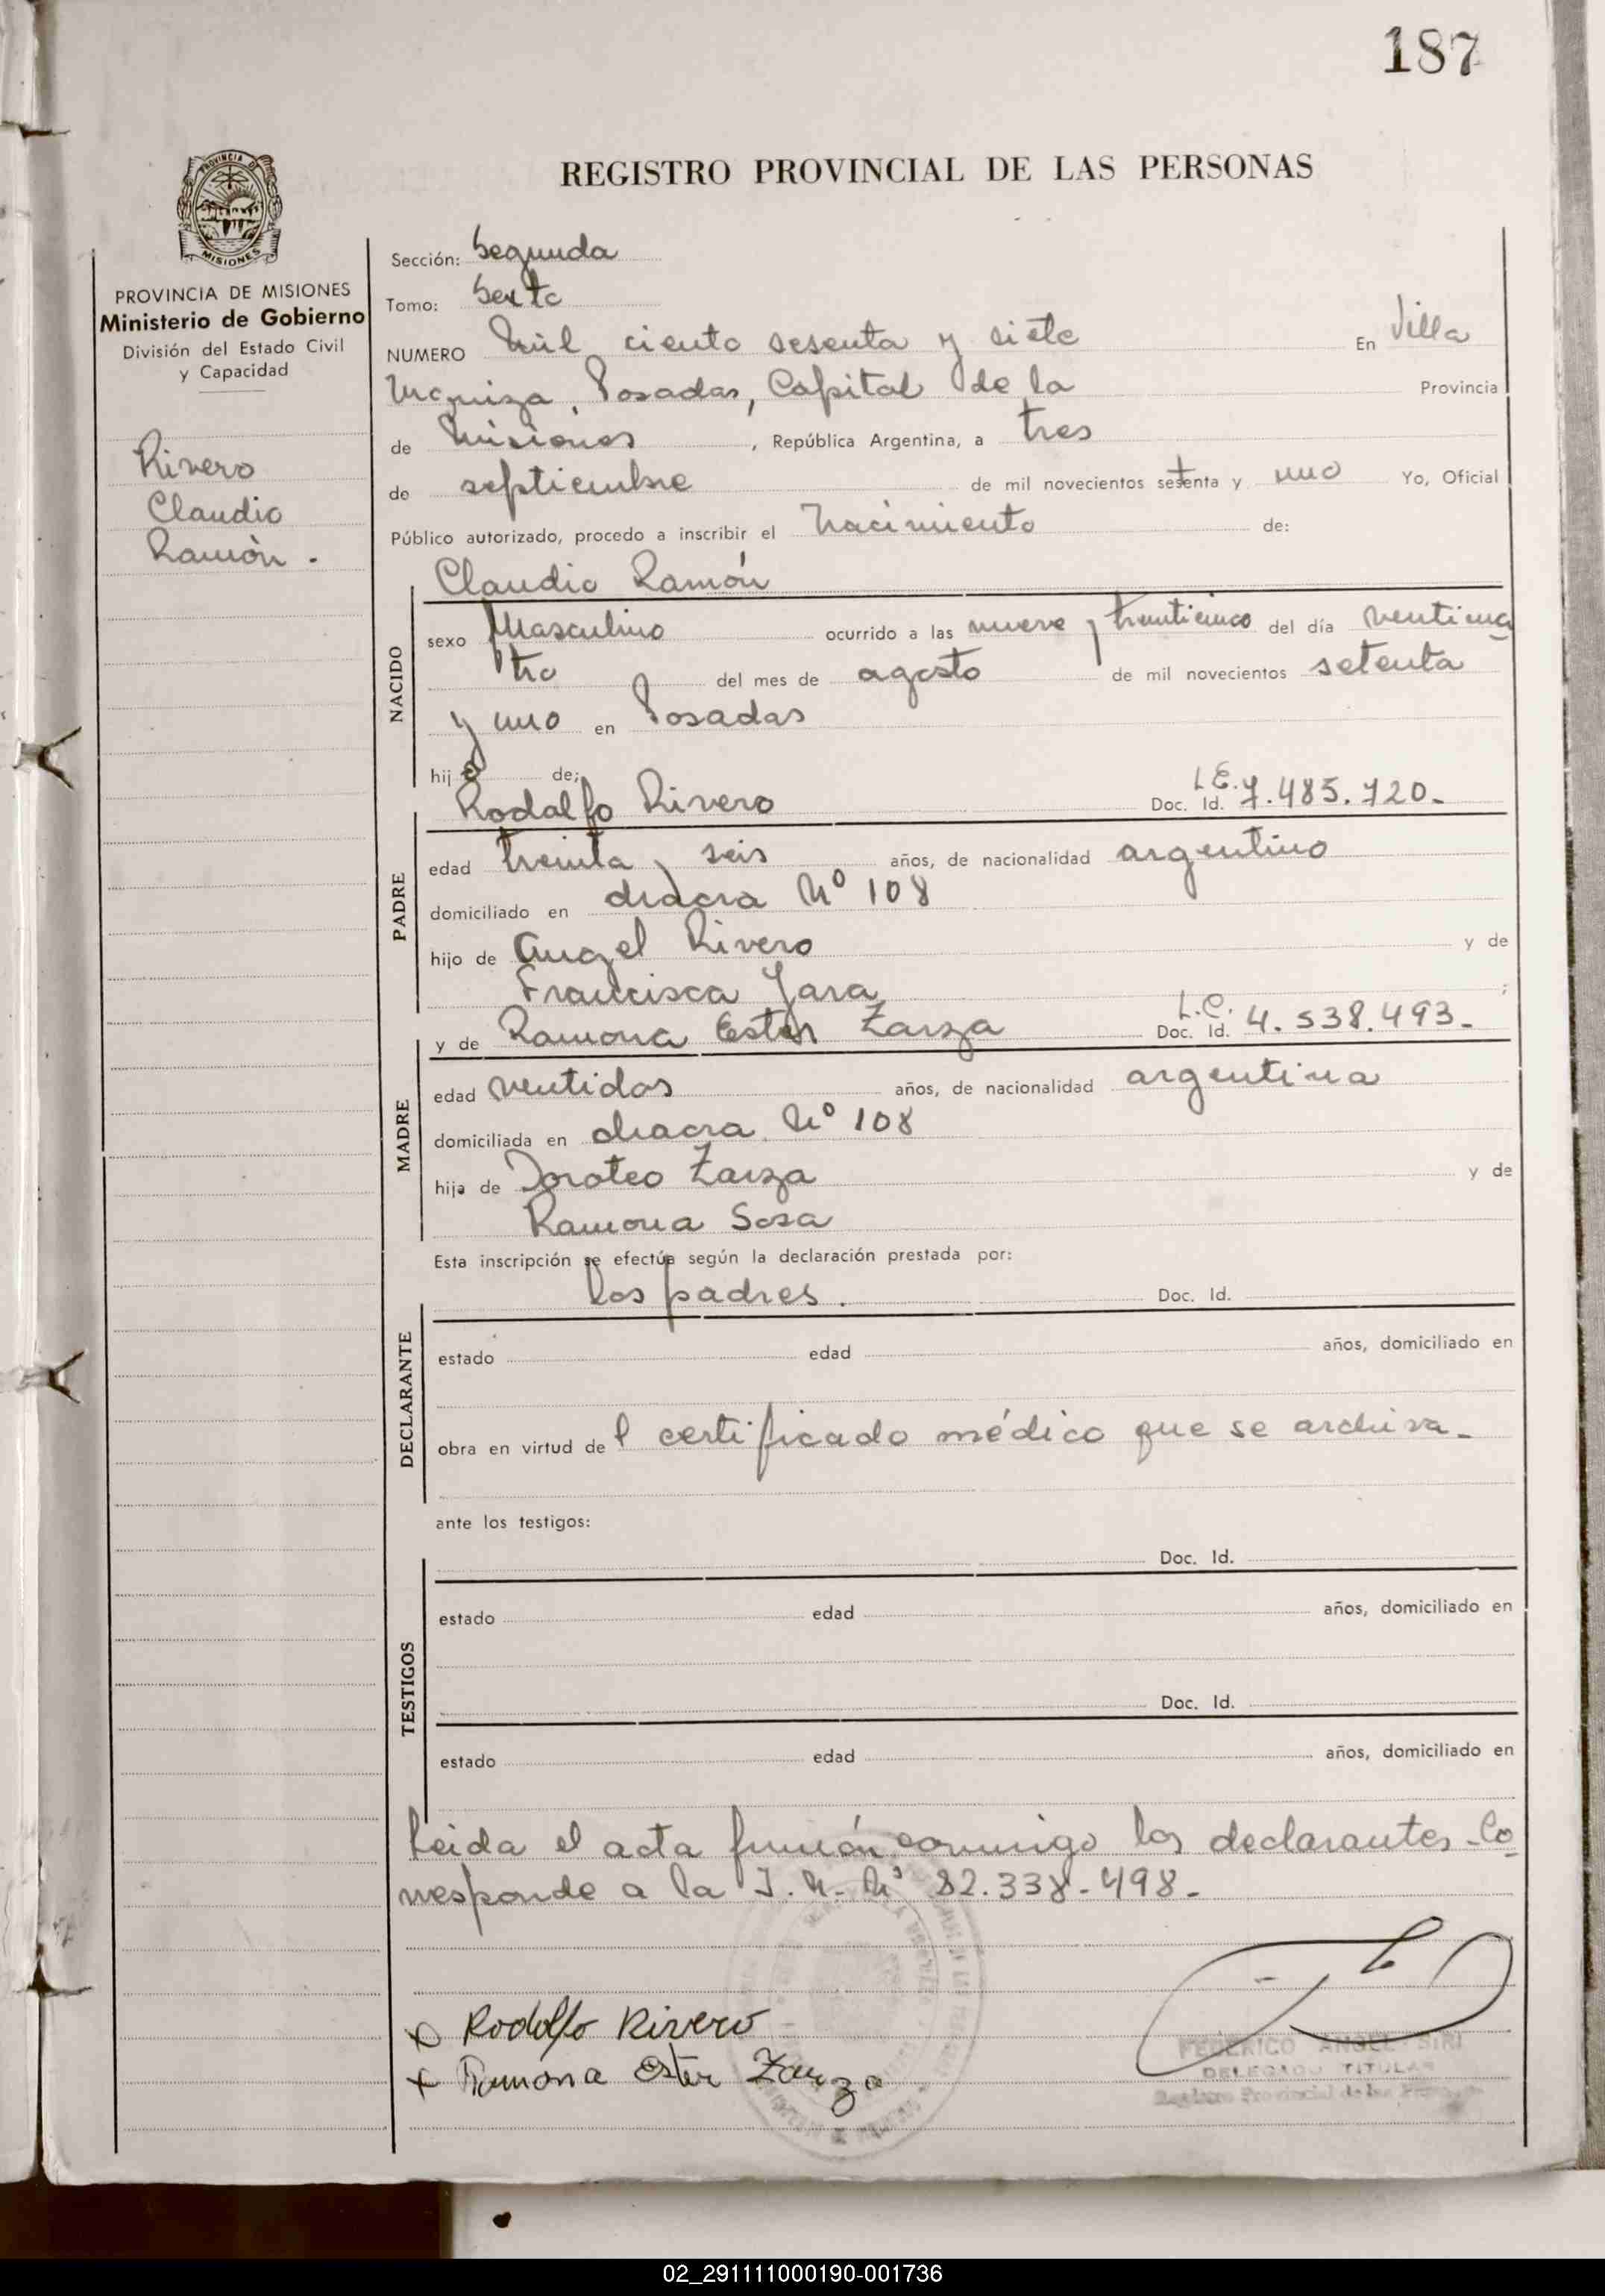 187
REGISTRO PROVINCIAL DE LAS PERSONAS
PROVINCIA DE MISIONES
PROVINCIA DE MISIONES
Ministerio de Gobierno
División del Estado Civil
y Capacidad
Rivero
Claudio
Ramón.
Sección: Segunda
Tomo: Sexto
NUMERO Mil ciento sesenta y siete En Villa
Urquiza, Posadas, Capital de la Provincia
de Misiones, República Argentina, a tres
de septiembre de mil novecientos setenta y uno Yo, Oficial
Público autorizado, procedo a inscribir el Nacimiento de:
Claudio Ramón
NACIDO
sexo Masculino ocurrido a las nueve y treinticinco del día venticua
tro del mes de agosto de mil novecientos setenta
y uno en Posadas
hijo de;
Rodolfo Rivero Doc. Id. L.E. 7.485.720.-
PADRE
edad treinta y seis años, de nacionalidad argentino
domiciliado en chacra Nº 108
hijo de Angel Rivero y de
Francisca Jara;
y de Ramona Ester Zarza Doc. Id. L.C. 4.538.493.-
MADRE
edad ventidos años, de nacionalidad argentina
domiciliada en chacra Nº 108
hija de Doroteo Zarza y de
Ramona Sosa
Esta inscripción se efectúa según la declaración prestada por:
los padres. Doc. Id.
DECLARANTE
estado edad años, domiciliado en
obra en virtud del certificado médico que se archiva.-
ante los testigos:
Doc. Id.
TESTIGOS
estado edad años, domiciliado en
Doc. Id.
estado edad años, domiciliado en
Leida el acta firman conmigo los declarantes-Co
rresponde a la I.N. Nº 22.338.498.-
Rodolfo Rivero
Ramona Ester Zarza
FEDERICO ANGEL SIRI
DELEGADO TITULAR
Registro Provincial de las Personas
02_291111000190-001736